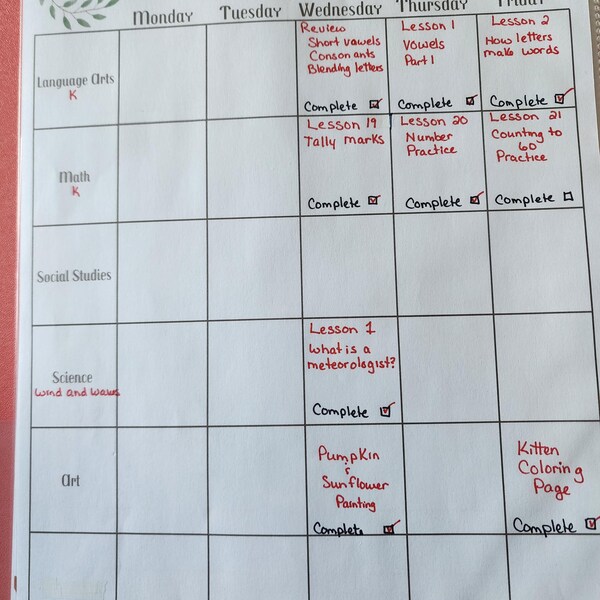 Monday Tuesday Wednesday Thursday Friday
Language Arts
K
Review
Short vowels
Consonants
Blending letters
Complete
Lesson 1
Vowels
Part 1
Complete
Lesson 2
How letters
make words
Complete
Math
K
Lesson 19
Tally marks
Complete
Lesson 20
Number
Practice
Complete
Lesson 21
Counting to
60
Practice
Complete
Social Studies
Science
Wind and Waves
Lesson 1
What is a
meteorologist?
Complete
Art
Pumpkin
&
Sunflower
Painting
Complete
Kitten
Coloring
Page
Complete